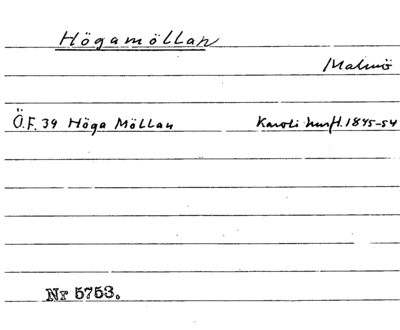 Högamöllan
Malmö
Ö.F. 39 Höga Möllan Karoli husfl. 1845-54
Nr 5753.